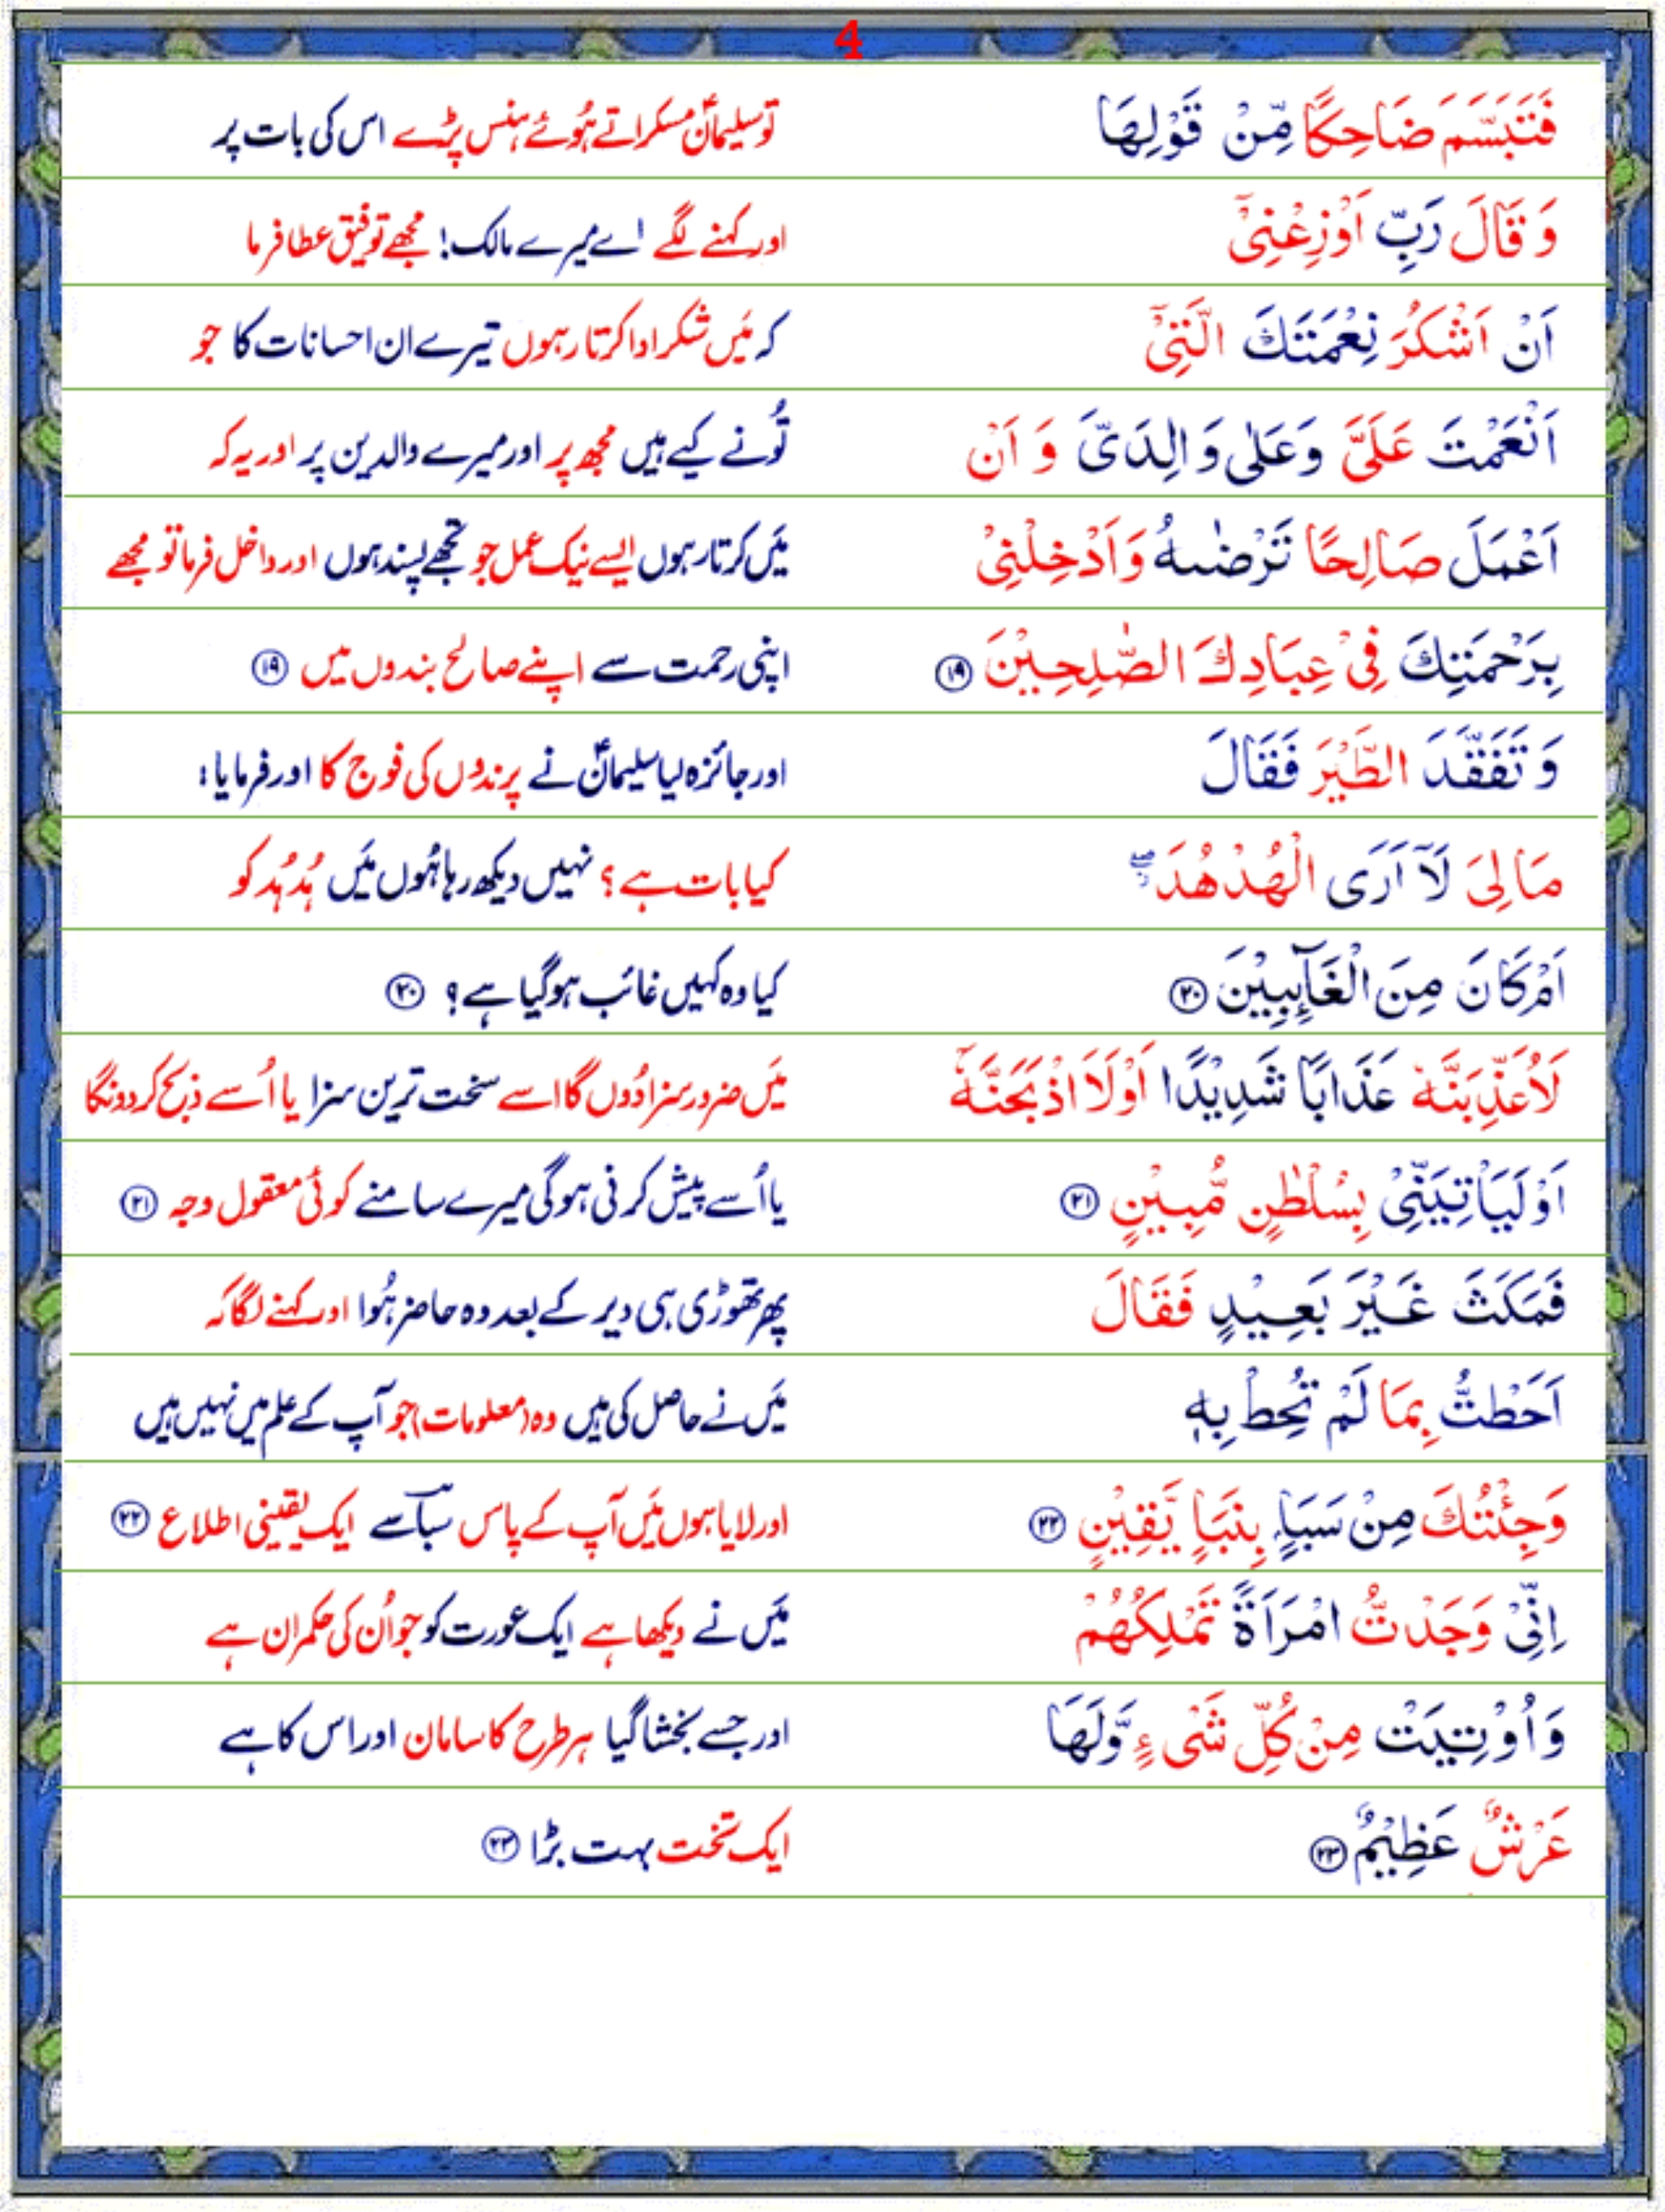 4
فَتَبَسَّمَ ضَاحِكًا مِّنْ قَوْلِهَا تو سلیمانؑ مسکراتے ہُوئے ہنس پڑے اس کی بات پر
وَ قَالَ رَبِّ اَوْزِعْنِیْۤ اور کہنے لگے اے میرے مالک! مجھے توفیق عطا فرما
اَنْ اَشْكُرَ نِعْمَتَكَ الَّتِیْۤ کہ مَیں شکر ادا کرتا رہوں تیرے ان احسانات کا جو
اَنْعَمْتَ عَلَیَّ وَعَلٰی وَالِدَیَّ وَ اَنْ تُونے کیے ہیں مجھ پر اور میرے والدین پر اور یہ کہ
اَعْمَلَ صَالِحًا تَرْضٰىهُ وَاَدْخِلْنِیْ مَیں کرتا رہوں ایسے نیک عمل جو تجھے پسند ہوں اور داخل فرما تو مجھے
بِرَحْمَتِكَ فِیْ عِبَادِكَ الصّٰلِحِیْنَ ۝۱۹ اپنی رحمت سے اپنے صالح بندوں میں ۝۱۹
وَ تَفَقَّدَ الطَّیْرَ فَقَالَ اور جائزہ لیا سلیمانؑ نے پرندوں کی فوج کا اور فرمایا:
مَا لِیَ لَاۤ اَرَی الْهُدْهُدَ ۖ کیا بات ہے؟ نہیں دیکھ رہا ہُوں مَیں ہُدہُد کو
اَمْ كَانَ مِنَ الْغَآىِٕبِیْنَ ۝۲۰ کیا وہ کہیں غائب ہوگیا ہے؟ ۝۲۰
لَاُعَذِّبَنَّهٗ عَذَابًا شَدِیْدًا اَوْ لَا۟اَذْبَحَنَّهٗۤ مَیں ضرور سزا دُوں گا اسے سخت ترین سزا یا اُسے ذبح کردونگا
اَوْ لَیَاْتِیَنِّیْ بِسُلْطٰنٍ مُّبِیْنٍ ۝۲۱ یا اُسے پیش کرنی ہوگی میرے سامنے کوئی معقول وجہ ۝۲۱
فَمَكَثَ غَیْرَ بَعِیْدٍ فَقَالَ پھر تھوڑی ہی دیر کے بعد وہ حاضر ہُوا اور کہنے لگا کہ
اَحَطْتُّ بِمَا لَمْ تُحِطْ بِهٖ مَیں نے حاصل کی ہیں وہ (معلومات) جو آپ کے علم میں نہیں ہیں
وَجِئْتُكَ مِنْ سَبَاٍۭ بِنَبَاٍ یَّقِیْنٍ ۝۲۲ اور لایا ہوں مَیں آپ کے پاس سبآ سے ایک یقینی اطلاع ۝۲۲
اِنِّیْ وَجَدْتُّ امْرَاَةً تَمْلِكُهُمْ مَیں نے دیکھا ہے ایک عورت کو جو اُن کی حکمران ہے
وَاُوْتِیَتْ مِنْ كُلِّ شَیْءٍ وَّلَهَا اور جسے بخشا گیا ہر طرح کا سامان اور اس کا ہے
عَرْشٌ عَظِیْمٌ ۝۲۳ ایک تخت بہت بڑا ۝۲۳